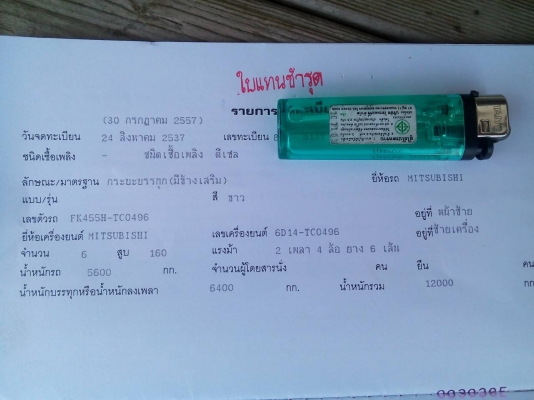 ใบแทนชำรุด
รายการ
(30 กรกฎาคม 2557)
วันจดทะเบียน 24 สิงหาคม 2537 เลขทะเบียน 8
ชนิดเชื้อเพลิง - ชนิดเชื้อเพลิง ดีเซล
ลักษณะ/มาตรฐาน กระบะบรรทุก(มีข้างเสริม) ยี่ห้อรถ MITSUBISHI
แบบ/รุ่น สี ขาว
เลขตัวรถ FK455H-TC0496 อยู่ที่ หน้าซ้าย
ยี่ห้อเครื่องยนต์ MITSUBISHI เลขเครื่องยนต์ 6D14-TC0496 อยู่ที่ ซ้ายเครื่อง
จำนวน 6 สูบ 160 แรงม้า 2 เพลา 4 ล้อ ยาง 6 เส้น
น้ำหนักรถ 5600 กก. จำนวนผู้โดยสารนั่ง คน ยืน ค
น้ำหนักบรรทุกหรือน้ำหนักลงเพลา 6400 กก. น้ำหนักรวม 12000 กก